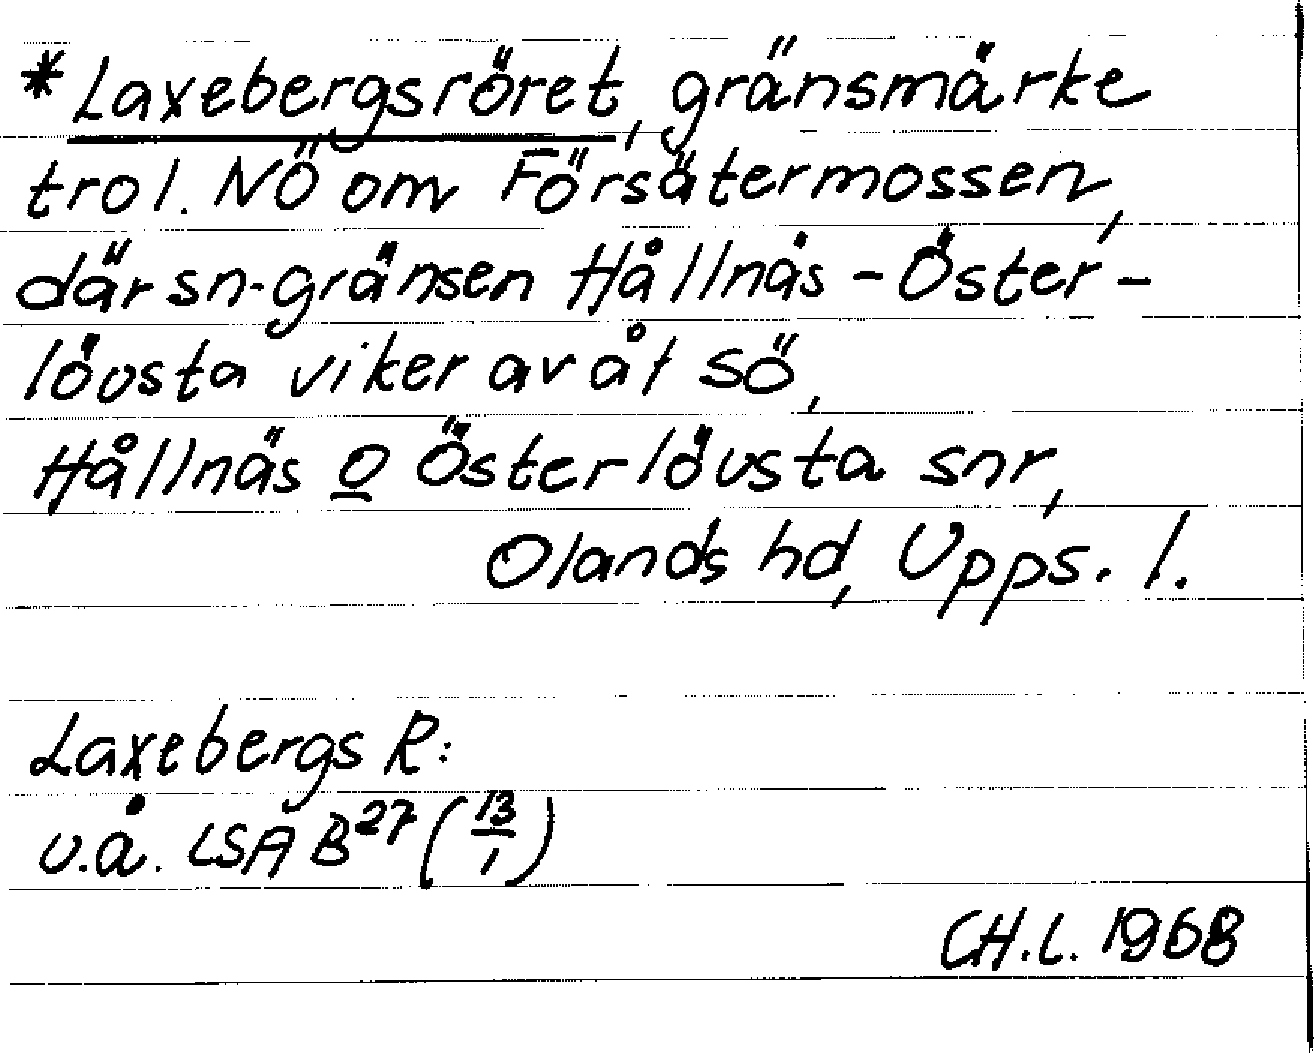 *Laxebergsröret, gränsmärke
trol. NÖ om Försätermossen,
där sn-gränsen Hållnäs - Öster-
lövsta viker av åt SÖ,
Hållnäs o Österlövsta snr,
Olands hd, Upps. l.
Laxebergs R:
u.å. LSA B27 (13/1)
CH.L. 1968